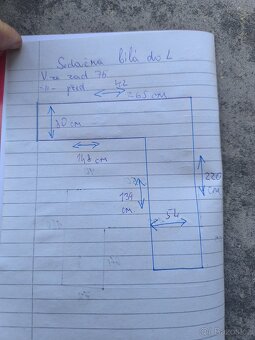 Sedačka bílá do L
Výška zad 75
-"- před 42
265 cm
80 cm
148 cm
220
cm
138
cm
54